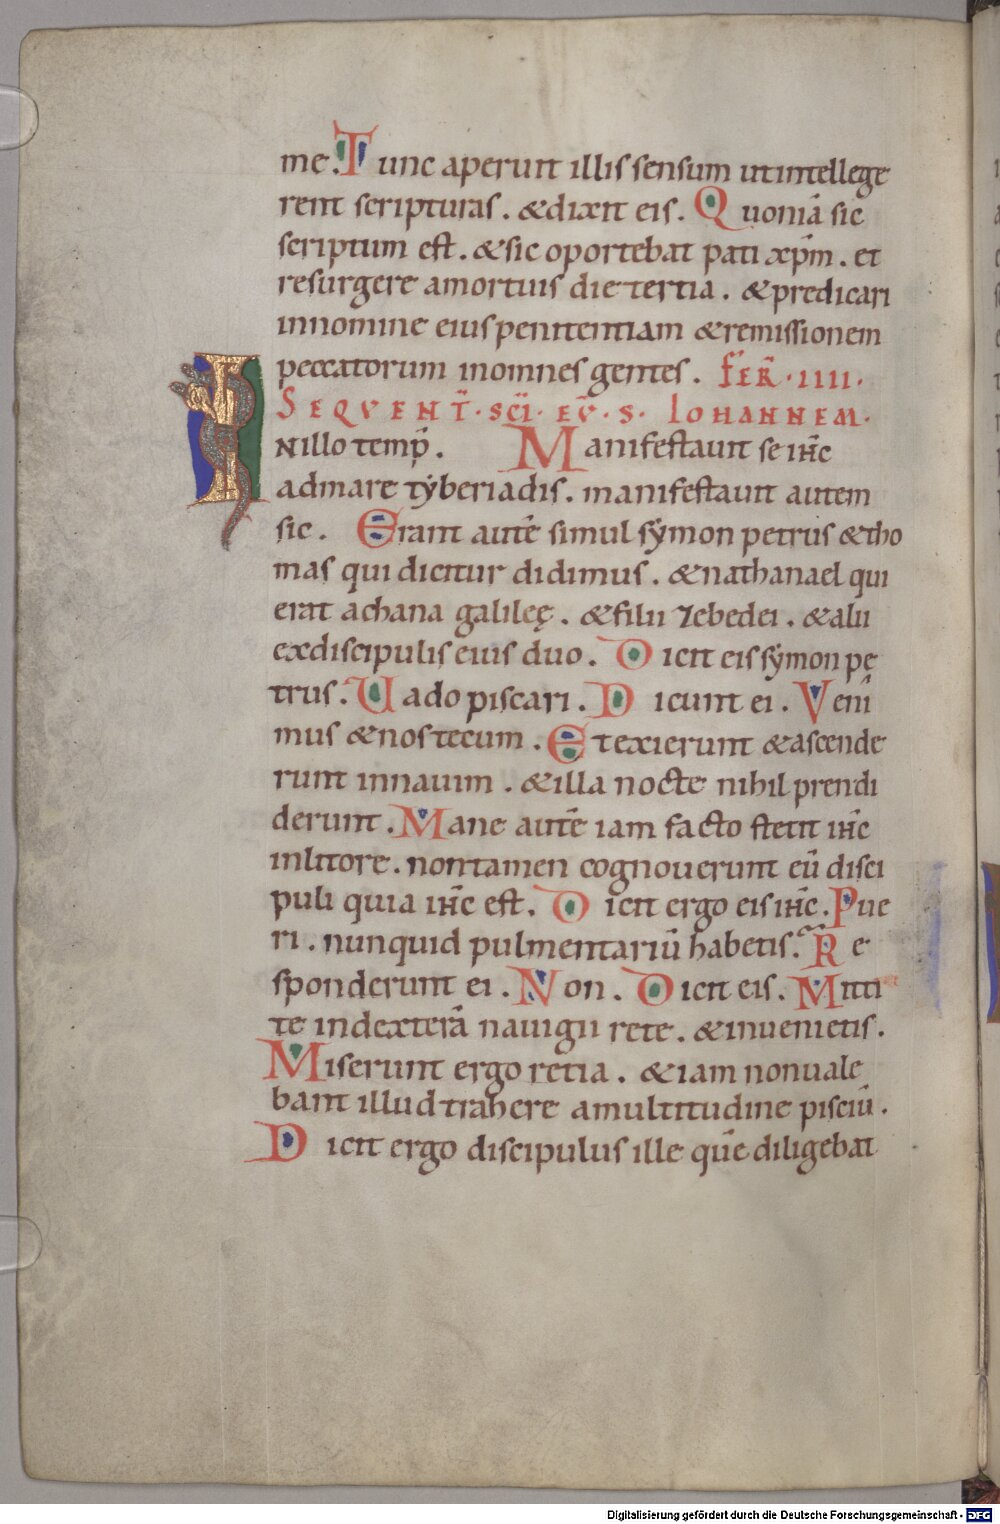 me. Tunc aperuit illis sensum ut intellege
rent scripturas. & dixit eis. Quoniā sic
scriptum est. & sic oportebat pati xp̄m. et
resurgere amortuis die tertia. & predicari
innomine eius penitentiam & remissionem
peccatorum inomnes gentes. FER̄·IIII·
SEQVENT̄·SC̄I·EV̄·S·IOHANNEM·
INillo temp̄. Manifestauit se ih̄c
admare tẏberiadis. manifestauit autem
sic. Erant autē simul sẏmon petrus & tho
mas qui dicitur didimus. & nathanael qui
erat achana galileę. & filii zebedei. & alii
exdiscipulis eius duo. Dicit eis sẏmon pe
trus. Uado piscari. Dicunt ei. Veni
mus & nos tecum. Et exierunt & ascende
runt innauim. & illa nocte nihil prendi
derunt. Mane autē iam facto stetit ih̄c
inlitore. non tamen cognouerunt eū disci
puli quia ih̄c est. Dicit ergo eis ih̄c. Pue
ri. nunquid pulmentariū habetis. Re
sponderunt ei. Non. Dicit eis. Mitti
te indexterā nauigii rete. & inuenietis.
Miserunt ergo retia. & iam nonuale
bant illud trahere amultitudine pisciū.
Dicit ergo discipulus ille quē diligebat
Digitalisierung gefördert durch die Deutsche Forschungsgemeinschaft - DFG